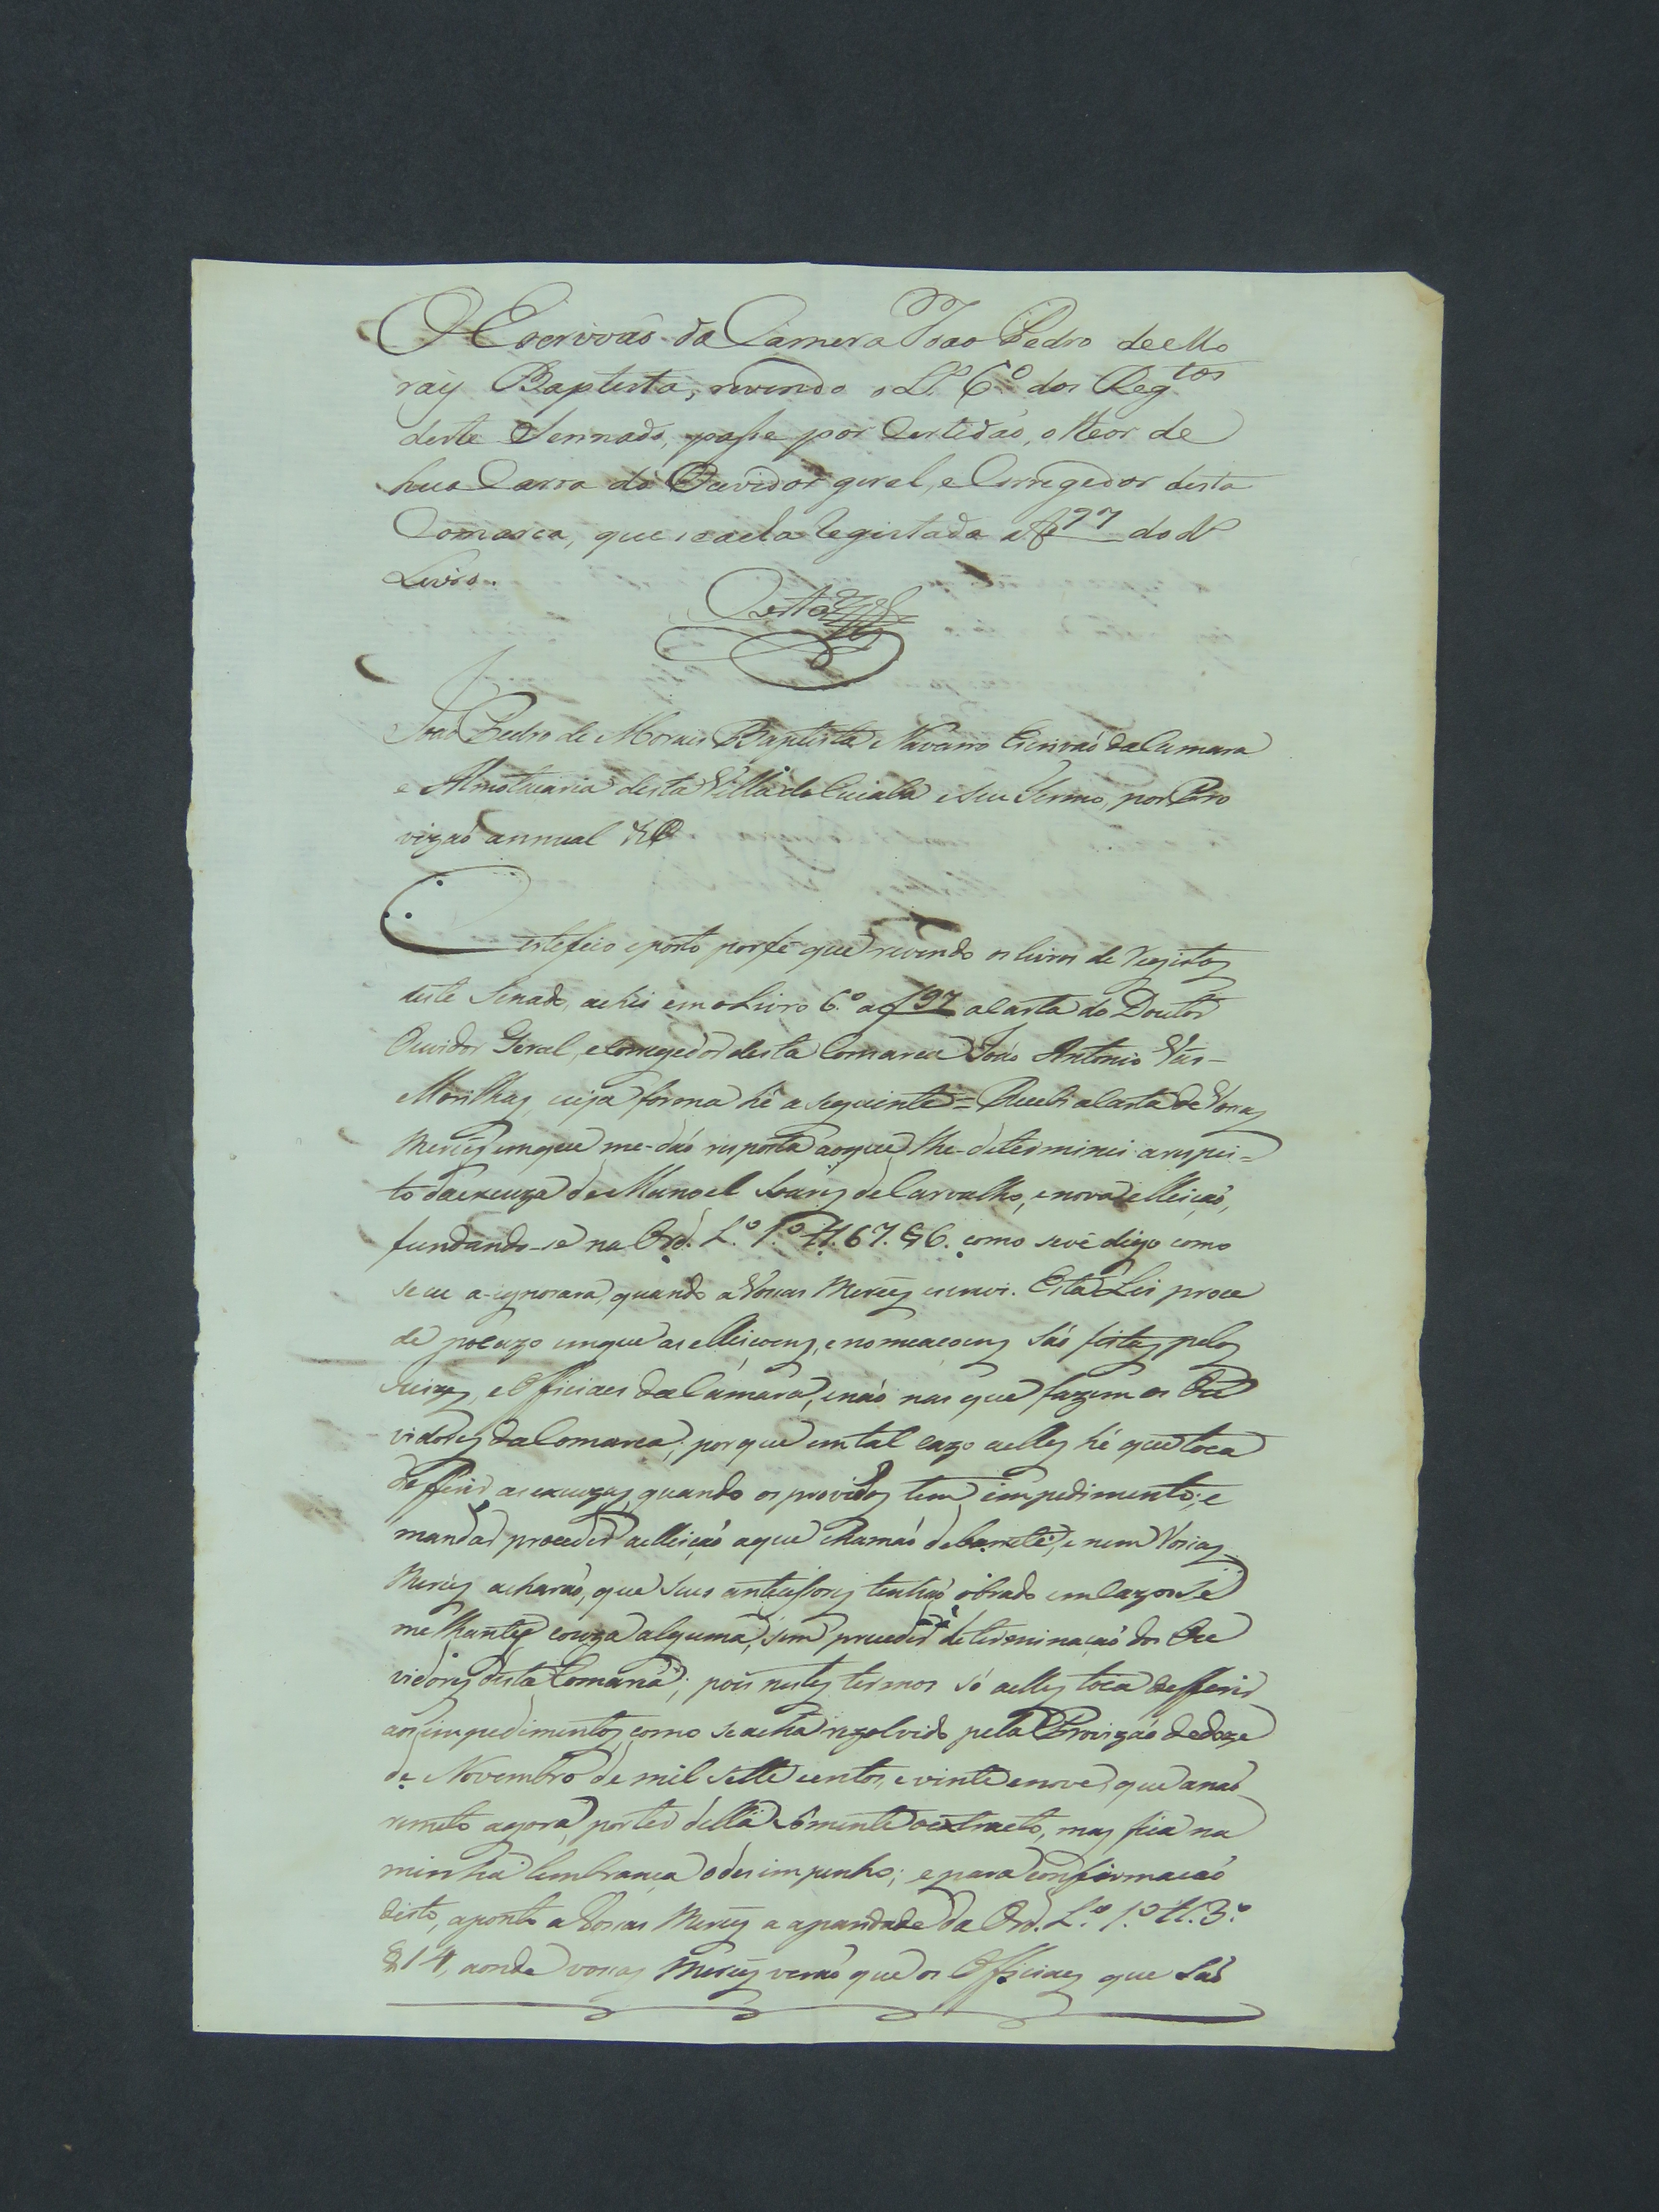 O Escrivaõ da Camera Joao Pedro de Mo
rais Baptista, revendo o L.º 6.º dos Reg.tos
deste Sennado, passe por Certidaõ, o theor de
hua Carta do Ouvidor geral, e Corregedor desta
Comarca, que se acha registada a f 97 do d.º
Livro.
João Pedro de Morais Baptista Navarro Escrivaõ da Camara
e Almotacaria desta Villa do Cuiaba e seu Termo, por Pro
vizaõ annual &ª
Certefico e porto por fé que revendo os livros de registos
deste Senado, achei em o Livro 6.º a f 97 a Carta do Doutor
Ouvidor Geral, e Corregedor desta Comarca João Antonio Vás
Morilhas, cuja forma hé a seguinte = Recebi a Carta de Vossas
Merces em que me-daõ resposta ao que lhe-determinei a respei=
to da excuza de Manoel Soares de Carvalho, e nova elleiçaõ,
fundando-se na Ord. L.º 1.º tt. 67. § 6. como se vê digo como
se eu a-ignorara, quando a Vossas Merces escrevi. Esta Lei proce
de no cazo em que as elleicoens, e nomeacoens saõ feitas pelos
Juizes, e Officiaes da Camara, e naõ nas que fazem os Ou
vidores da Comarca; porque em tal cazo a elles hé que toca
defferir as excuzas, quando os providos tem impedimento; e
mandar proceder a elleiçaõ a que chamaõ de barrete; e nem Vossas
Merces acharaõ, que seus antecessores tenhaõ obrado em Cazos se
melhantes couza alguma, sem preceder a determinaçaõ dos Ou
vidores desta Comarca; pois nestes termos só a elles toca defferir
aos impedimentos, como se acha rezolvido pela Provizaõ de doze
de Novembro de mil sette centos, e vinte e nove, que a naõ
remeto agora, por ter della sómente o extracto, mas fica na
minha lembrança o desimpenho; e para confirmacaõ
disto, aponto a Vossas Merces a aparidade da Ord. L.º 1.º tt. 3.º
§ 14, aonde vossas Merces veraõ que os Officiaes que saõ